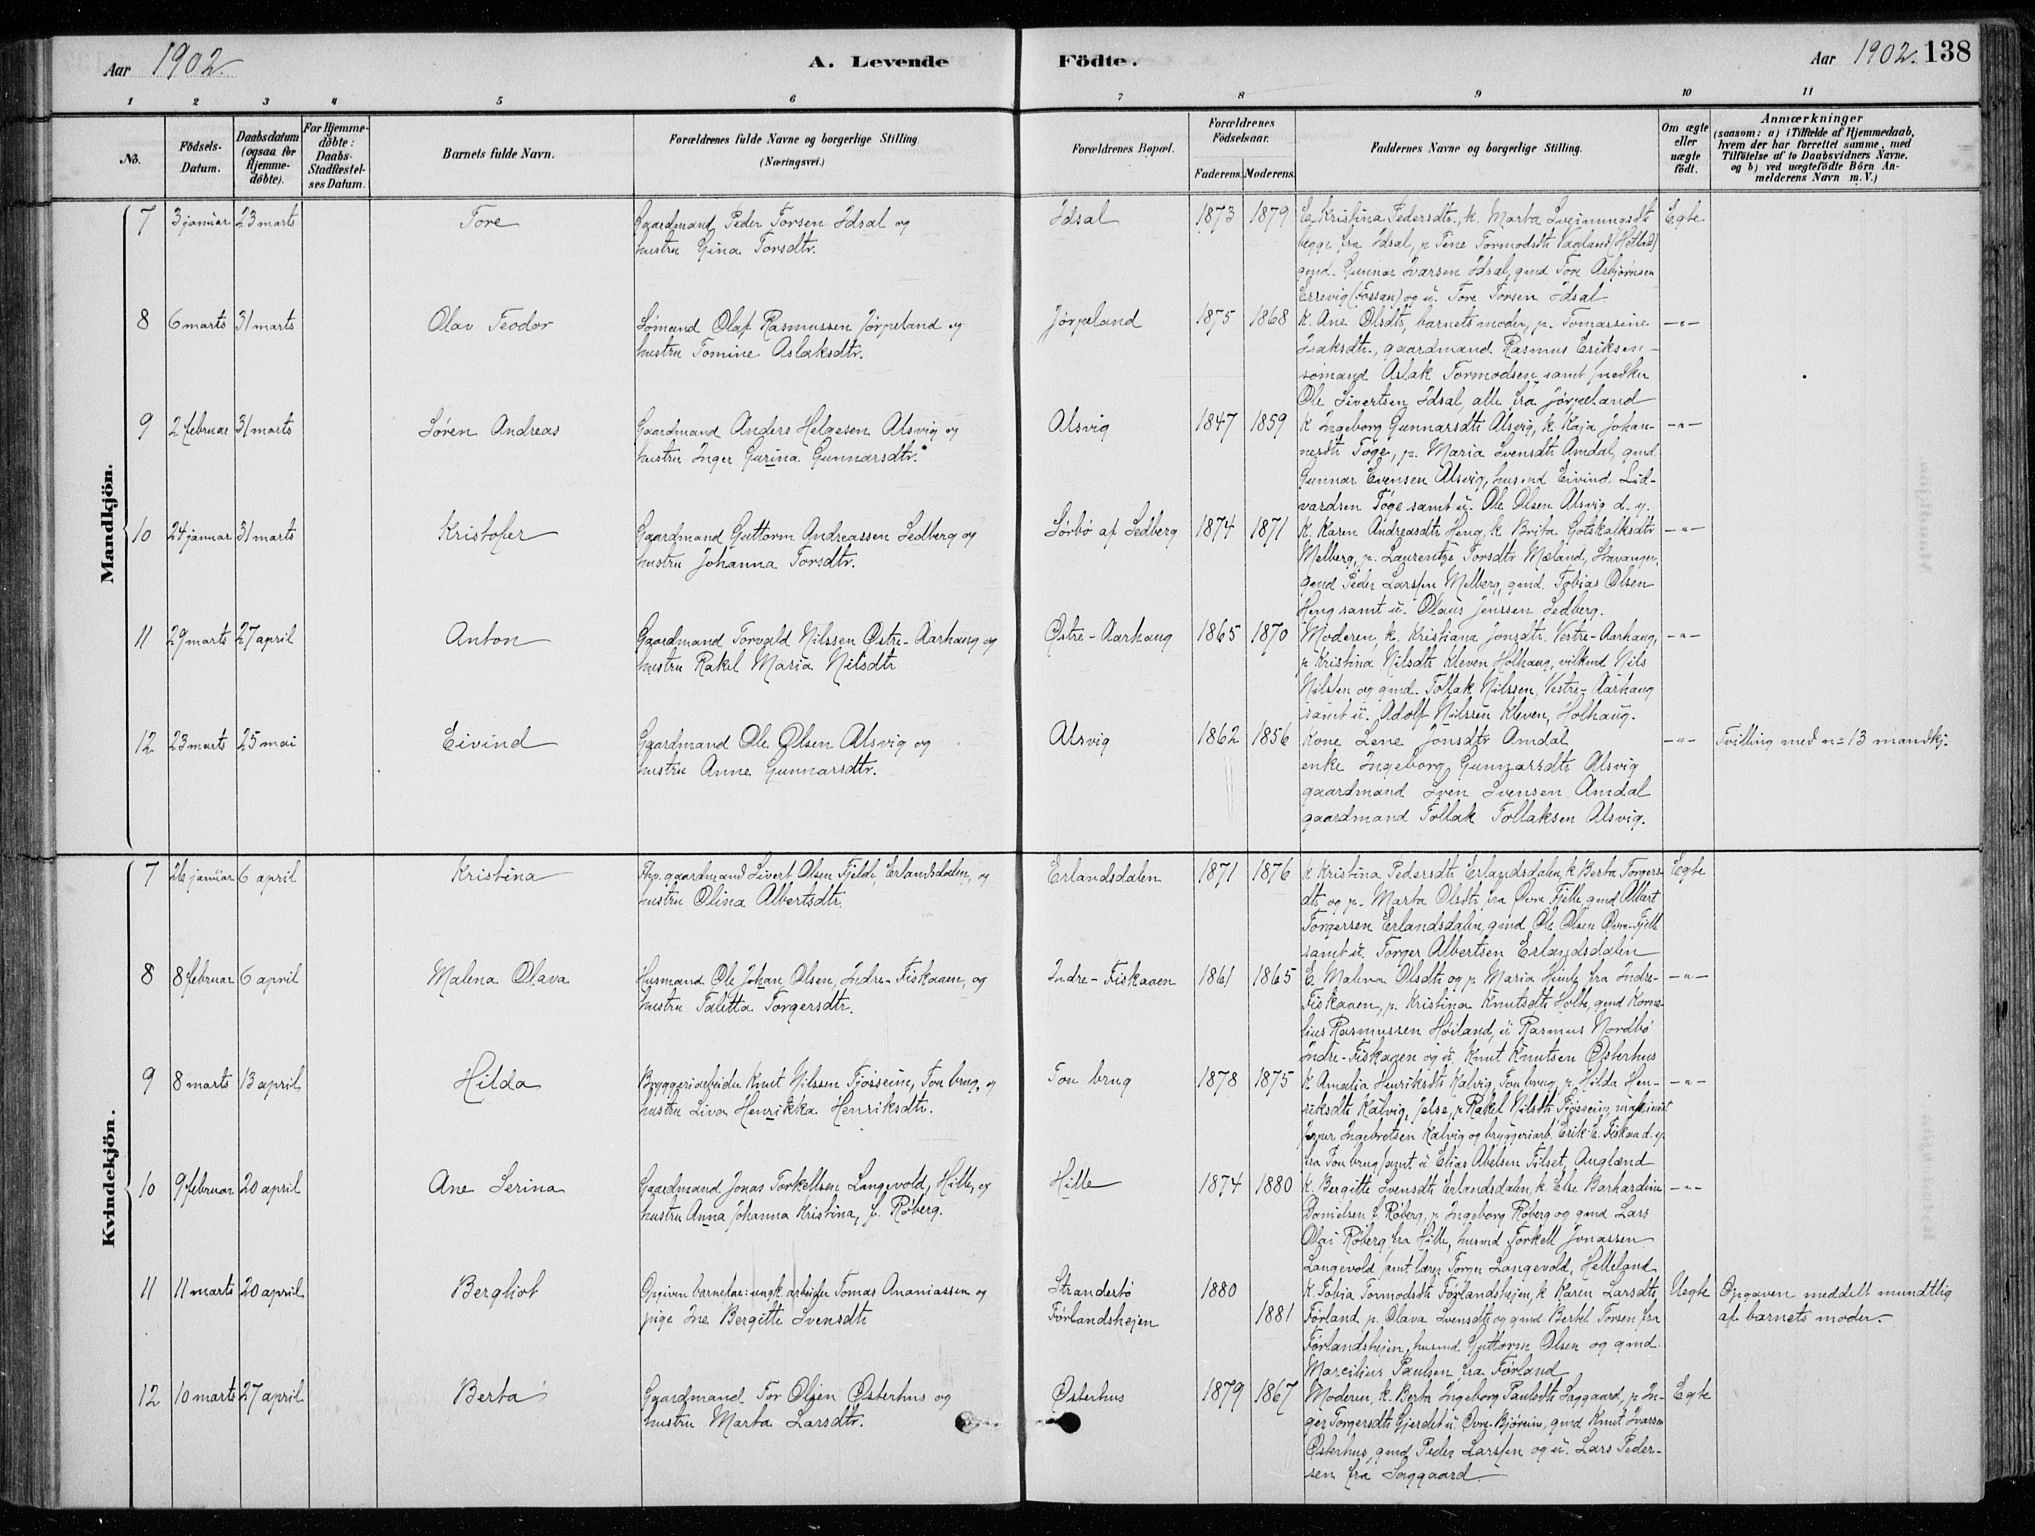 Aar 1902. A. Levende Födte. Aar 1902. 138
1 2 3 4 5 6 7 8 9 10 11
No.
Födsels-Datum.
Daabsdatum (ogsaa for Hjemme-döbte).
For Hjemme-döbte: Daabs-Stadfæstel-ses Datum.
Barnets fulde Navn.
Forældrenes fulde Navne og borgerlige Stilling (Næringsvei.)
Forældrenes Bopæl.
Forældrenes Födselsaar. Faderens. Moderens.
Faddernes Navne og borgerlige Stilling.
Om ægte eller uægte födt.
Anmærkninger (saasom: a) i Tilfælde af Hjemmedaab, hvem der har forrettet samme, med Tilföielse af to Daabsvidners Navne, og b) ved uægtefödte Börn An-melderens Navn m. V.)
Mandkjön.
7 3 januar 23 marts Tore
Gaardmand Peder Torsen Idsal og
hustru Gina Torsdtr.
Idsal 1873 1879
E. Kristina Pedersdtr, k. Marta Sveinungsdtr
begge fra Idsal, p Tine Tormodsdtr Vaaland (Hetland)
gmd. Gunnar Ivarsen Idsal, gmd Tore Asbjørnsen
Errevig (Fossan) og u. Tore Torsen Idsal
Egte
8 6 marts 31 marts Olav Teodor
Sømand Olaf Rasmussen Jørpeland og
hustru Tomine Aslaksdtr.
Jørpeland 1875 1868
K. Ane Olsdtr, barnets moder, p. Tomassine
Isaksdtr., gaardmand Rasmus Eriksen
sømand Aslak Tormodsen samt snedker
Ole Sivertsen Idsal, alle fra Jørpeland
-"-
9 2 februar 31 marts Søren Andreas
Gaardmand Anders Helgesen Alsvig og
hustru Inger Gurina Gunnarsdtr.
Alsvig 1847 1859
K Ingeborg Gunnarsdtr Alsvig, k. Kaja Johan-
nesdtr Tøge, p. Maria Svensdtr Amdal, gmd.
Gunnar Evensen Alsvig, husmd Eivind Lid-
vardsen Tøge samt u. Ole Olsen Alsvig d. y.
-"-
10 24 januar 31 marts Kristofer
Gaardmand Guttorm Andreassen Sedberg og
hustru Johanna Torsdtr.
Sørbø af Sedberg 1874 1871
K. Karen Andreasdtr Heng, k Brita Gotskalksdtr
Melberg, p. Laurentze Torsdtr Mæland, Stavanger,
Gmd Peder Larssen Melberg, gmd. Tobias Olsen
Heng samt u. Olaus Jenssen Sedberg.
-"-
11 29 marts 27 april Anton
Gaardmand Torvald Nilssen Østre-Aarhaug og
hustru Rakel Maria Nilsdtr
Østre-Aarhaug 1865 1870
Moderen, k. Kristiana Jonsdtr. Vestre-Aarhaug,
p Kristina Nilsdtr Kleven Holhaug, vilkmd Nils
Nilssen og gmd. Tollak Nilssen, Vestre-Aarhaug
samt u. Adolf Nilssen Kleven, Holhaug.
-"-
12 23 marts 25 mai Eivind
Gaardmand Ole Olsen Alsvig og
hustru Anne Gunnarsdtr.
Alsvig 1862 1856
Kone Lene Jonsdtr Amdal
enke Ingeborg Gunnarsdtr Alsvig
gaardmand Sven Svensen Amdal
gaardmand Tollak Tollaksen Alsvig.
-"- Tvilling med n= 13 mandkj.
Kvindekjön.
7 26 januar 6 april Kristina
Fhp. gaardmand Sivert Olsen Fjelde, Erlandsdalen, og
hustru Olina Albertsdtr.
Erlandsdalen 1871 1876
K Kristina Pedersdtr Erlandsdalen, k Berta Torgers-
dtr og p. Marta Olsdtr fra Øvre Tjelle, gmd Albert
Torgersen Erlandsdalen, gmd Ole Olsen Øvre-Tjelle
samt u. Torger Albertsen Erlandsdalen
Egte
8 8 februar 6 april Malena Olava
Husmand Ole Johan Olsen, Indre-Fiskaaen, og
hustru Talitta Torgersdtr.
Indre-Fiskaaen 1861 1865
E. Malena Olsdtr og p. Maria fra Indre-
Fiskaaen, p. Kristina Knutsdtr Holte, gmd Korne-
lius Rasmussen Høiland, u Rasmus Nordbø
Indre-Fiskaaen og u. Knut Knutsen Østerhus
-"-
9 8 marts 13 april Hilda
Bryggeriarbeider Knut Nilssen Tjøsseim, Tou brug, og
hustru Liva Henrikka Henriksdtr.
Tou brug 1878 1875
K Amalia Henriksdtr Kalvig, Tou brug, p. Hilda Hen-
riksdtr Kalvig, Jelse, p Rakel Nilsdtr Tjøsseim, maskinist
Jesper Ingebretsen Kalvig og bryggeriarb. Erik E. Fiskaa d. y.
fra Tou brug samt u Elias Abelsen Tilset, Augland
-"-
10 9 februar 20 april Ane Serina
Gaardmand Jonas Torkellsen Langevold, Hille, og
hustru Anna Johanna Kristina, f. Røberg.
Hille 1874 1880
K. Bergitte Svensdtr Erlandsdalen, k. Else Barhardine
Danielsen f. Røberg, p Ingeborg Røberg og gmd Lars
Olai Røberg fra Hille, husmd Torkell Jonassen
Langevold samt lærer Torger Langevold, Helleland
-"-
11 11 marts 20 april Bergliot
Opgiven barnefar: ungk arbeider Tomas Ananiassen og
pige Ine Bergitte Svensdtr
Strandestø 1880
Førlandshejen 1881
K. Tobia Tormodsdtr Førlandshejen, k Karen Larsdtr
Førland, p. Olava Svensdtr og gmd Bertel Torsen fra
Førlandshejen, husmd Guttorm Olsen og gmd.
Marcilius Paulsen fra Førland
Uegte Opgaven meddelt mundtlig
af barnets moder.
12 10 marts 27 april Berta
Gaardmand Tor Olsen Østerhus og
hustru Marta Larsdtr.
Østerhus 1879 1867
Moderen, k. Berta Ingeborg Paulsdtr Saggaard, p In-
ger Torgersdtr Gjerdet u. Øvre-Bjøreim, gmd Knut Ivarsen
Østerhus, gmd Peder Larssen og u. Lars Peder-
sen fra Saggaard
Egte